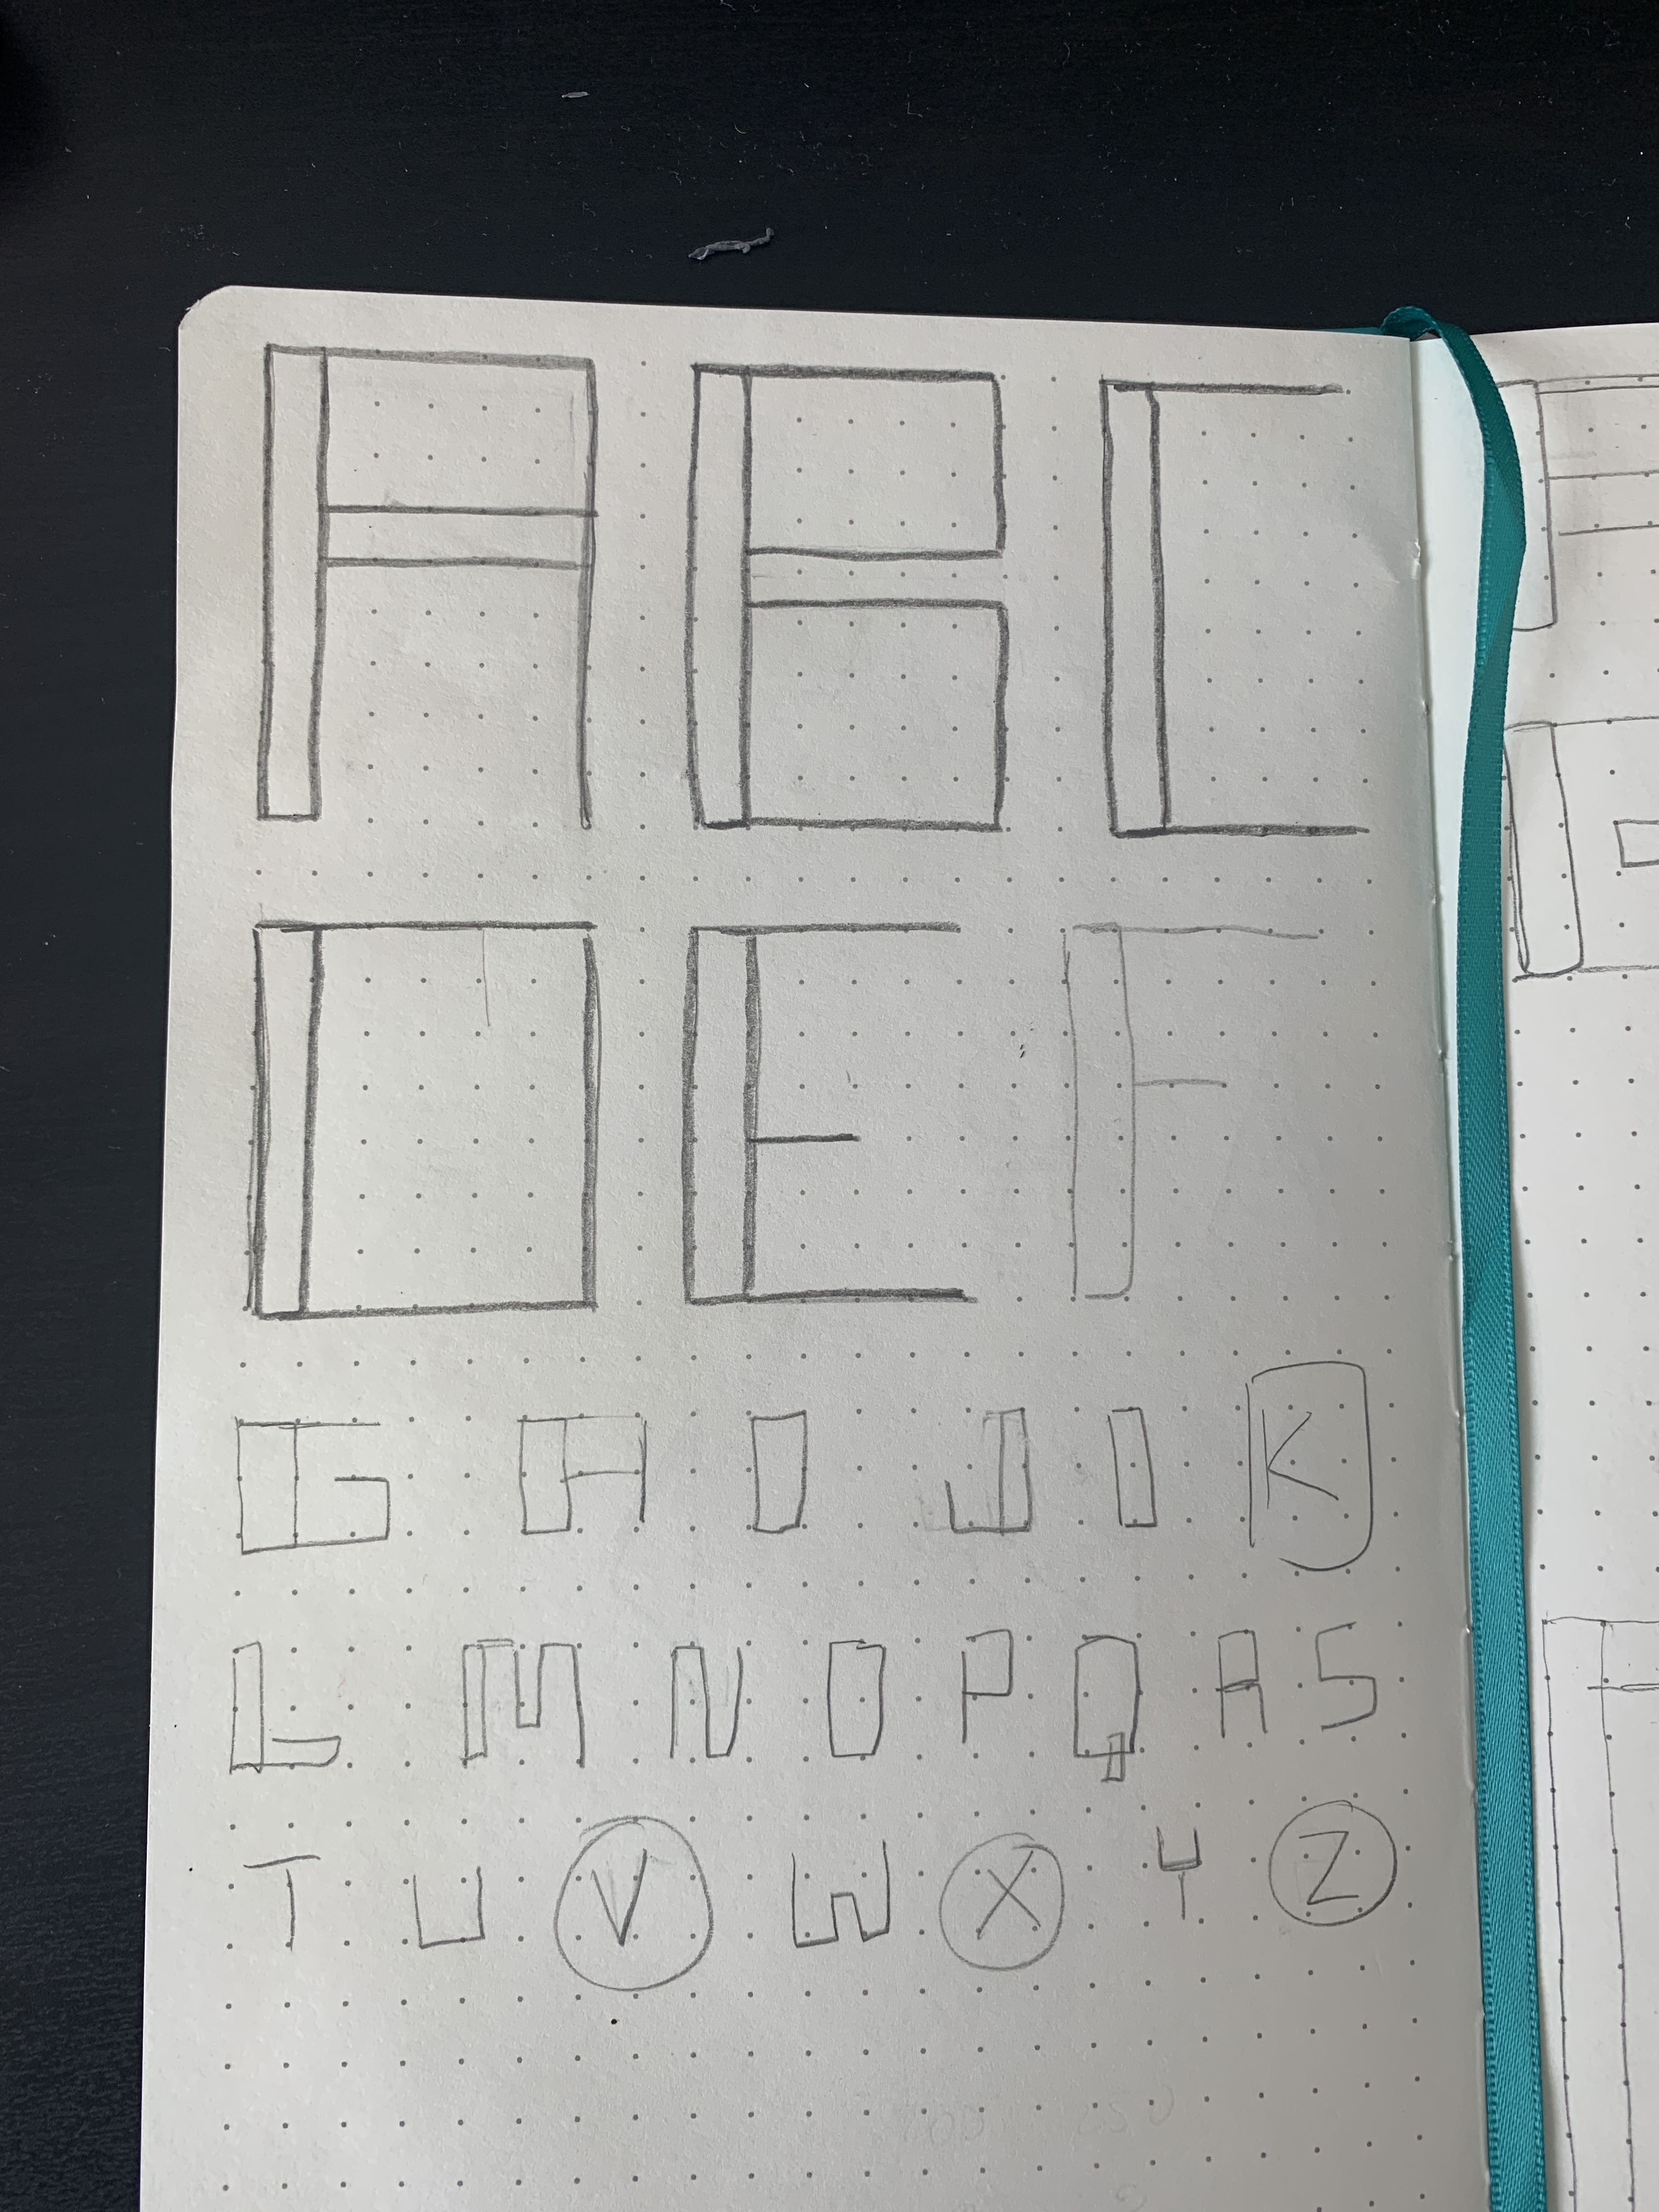 A B C
D E F
G H I J I K
L M N O P Q R S
T U V W X Y Z